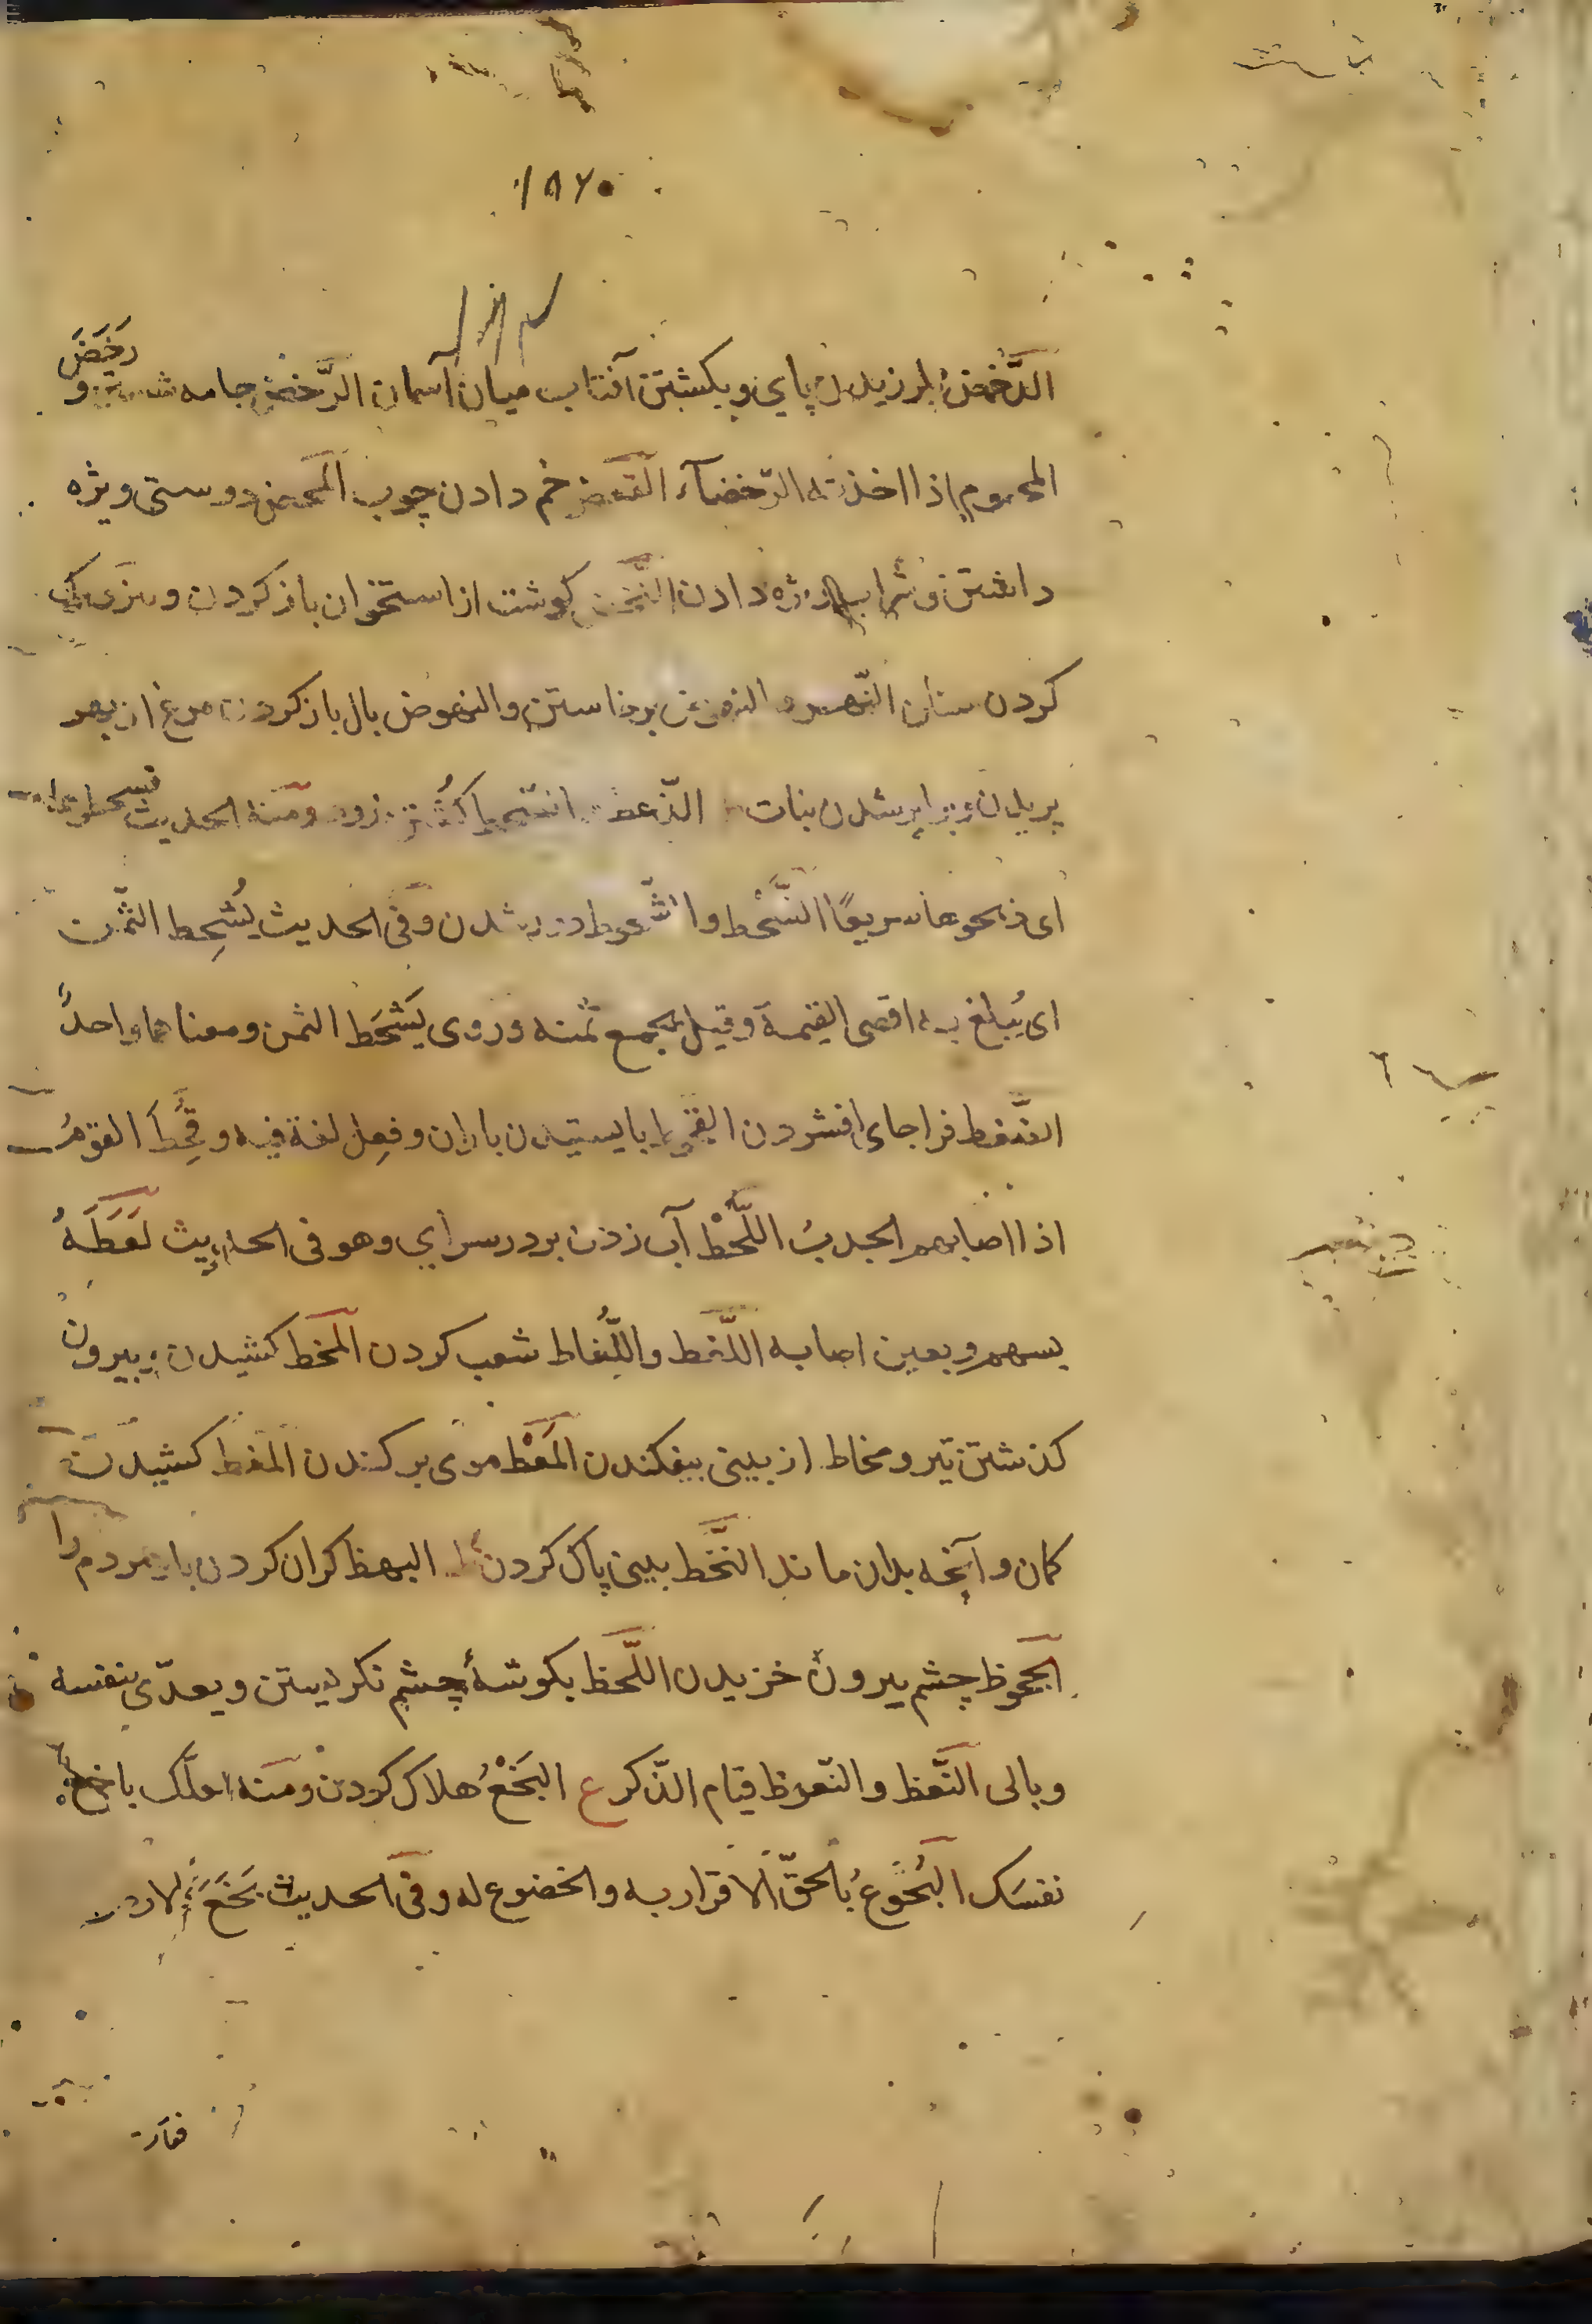 ۱۸۶۰
الدَّحْضُ بلرزیدن پای و بکشتن آفتاب میان آسمان الرَّحض جامه شستن و رَحَضَ
المحموم اذا اخذته الرّحضآء القعض خم دادن چوب المحض دوستی ویژه
داشتن و شراب ویژه دادن النّحض کوشت از استخوان باز کردن و تنک
کردن سنان النّهض والنهوض برخاستن والنهوض بال باز کردن مرغ از بهر
پریدن و برابر شدن بنات الذّعط زود ومنه الحدیث
ای ذبحوها سریعًا الشَّحط والشّحوط دور شدن وفی الحدیث یُشحِط الثّمن
ای یُبلغ به اقصی القیمة وقیل یجمع ثمنه وروی یَشْحَط الثمن ومعناهما واحدٌ
الضَّغط فرا جای افشردن القحوط بایستیدن باران وفعِل لغة فیه وقُحِطَ القومُ
اذا اصابهم الجدبُ اللَّحْط آب زدن بر در سرای وهو فی الحدیث لَعَطَهُ
بسهم وبعین اصابه اللَّغط واللُّغاط شعب کردن المخط کشیدن و بیرون
کذشتن تیر ومخاط از بینی بیفکندن المَعْط موی برکندن المغط کشیدن
کمان وآنچه بدان ماند النَّخط بینی پاک کردن ظ البهظ کران کردن بار مردم را
الجحوظ چشم بیرون خزیدن اللَّحظ بکوشهٔ چشم نکریستن ویعدّی بنفسه
وبالی النَّعظ والنّعوظ قیام الذّکر ع البَخْعُ هلاک کردن ومنه لعلّک باخع
نفسَک البُخوعُ بالحقّ الاقرار به والخضوع له وفی الحدیث بَخَعَ الارض